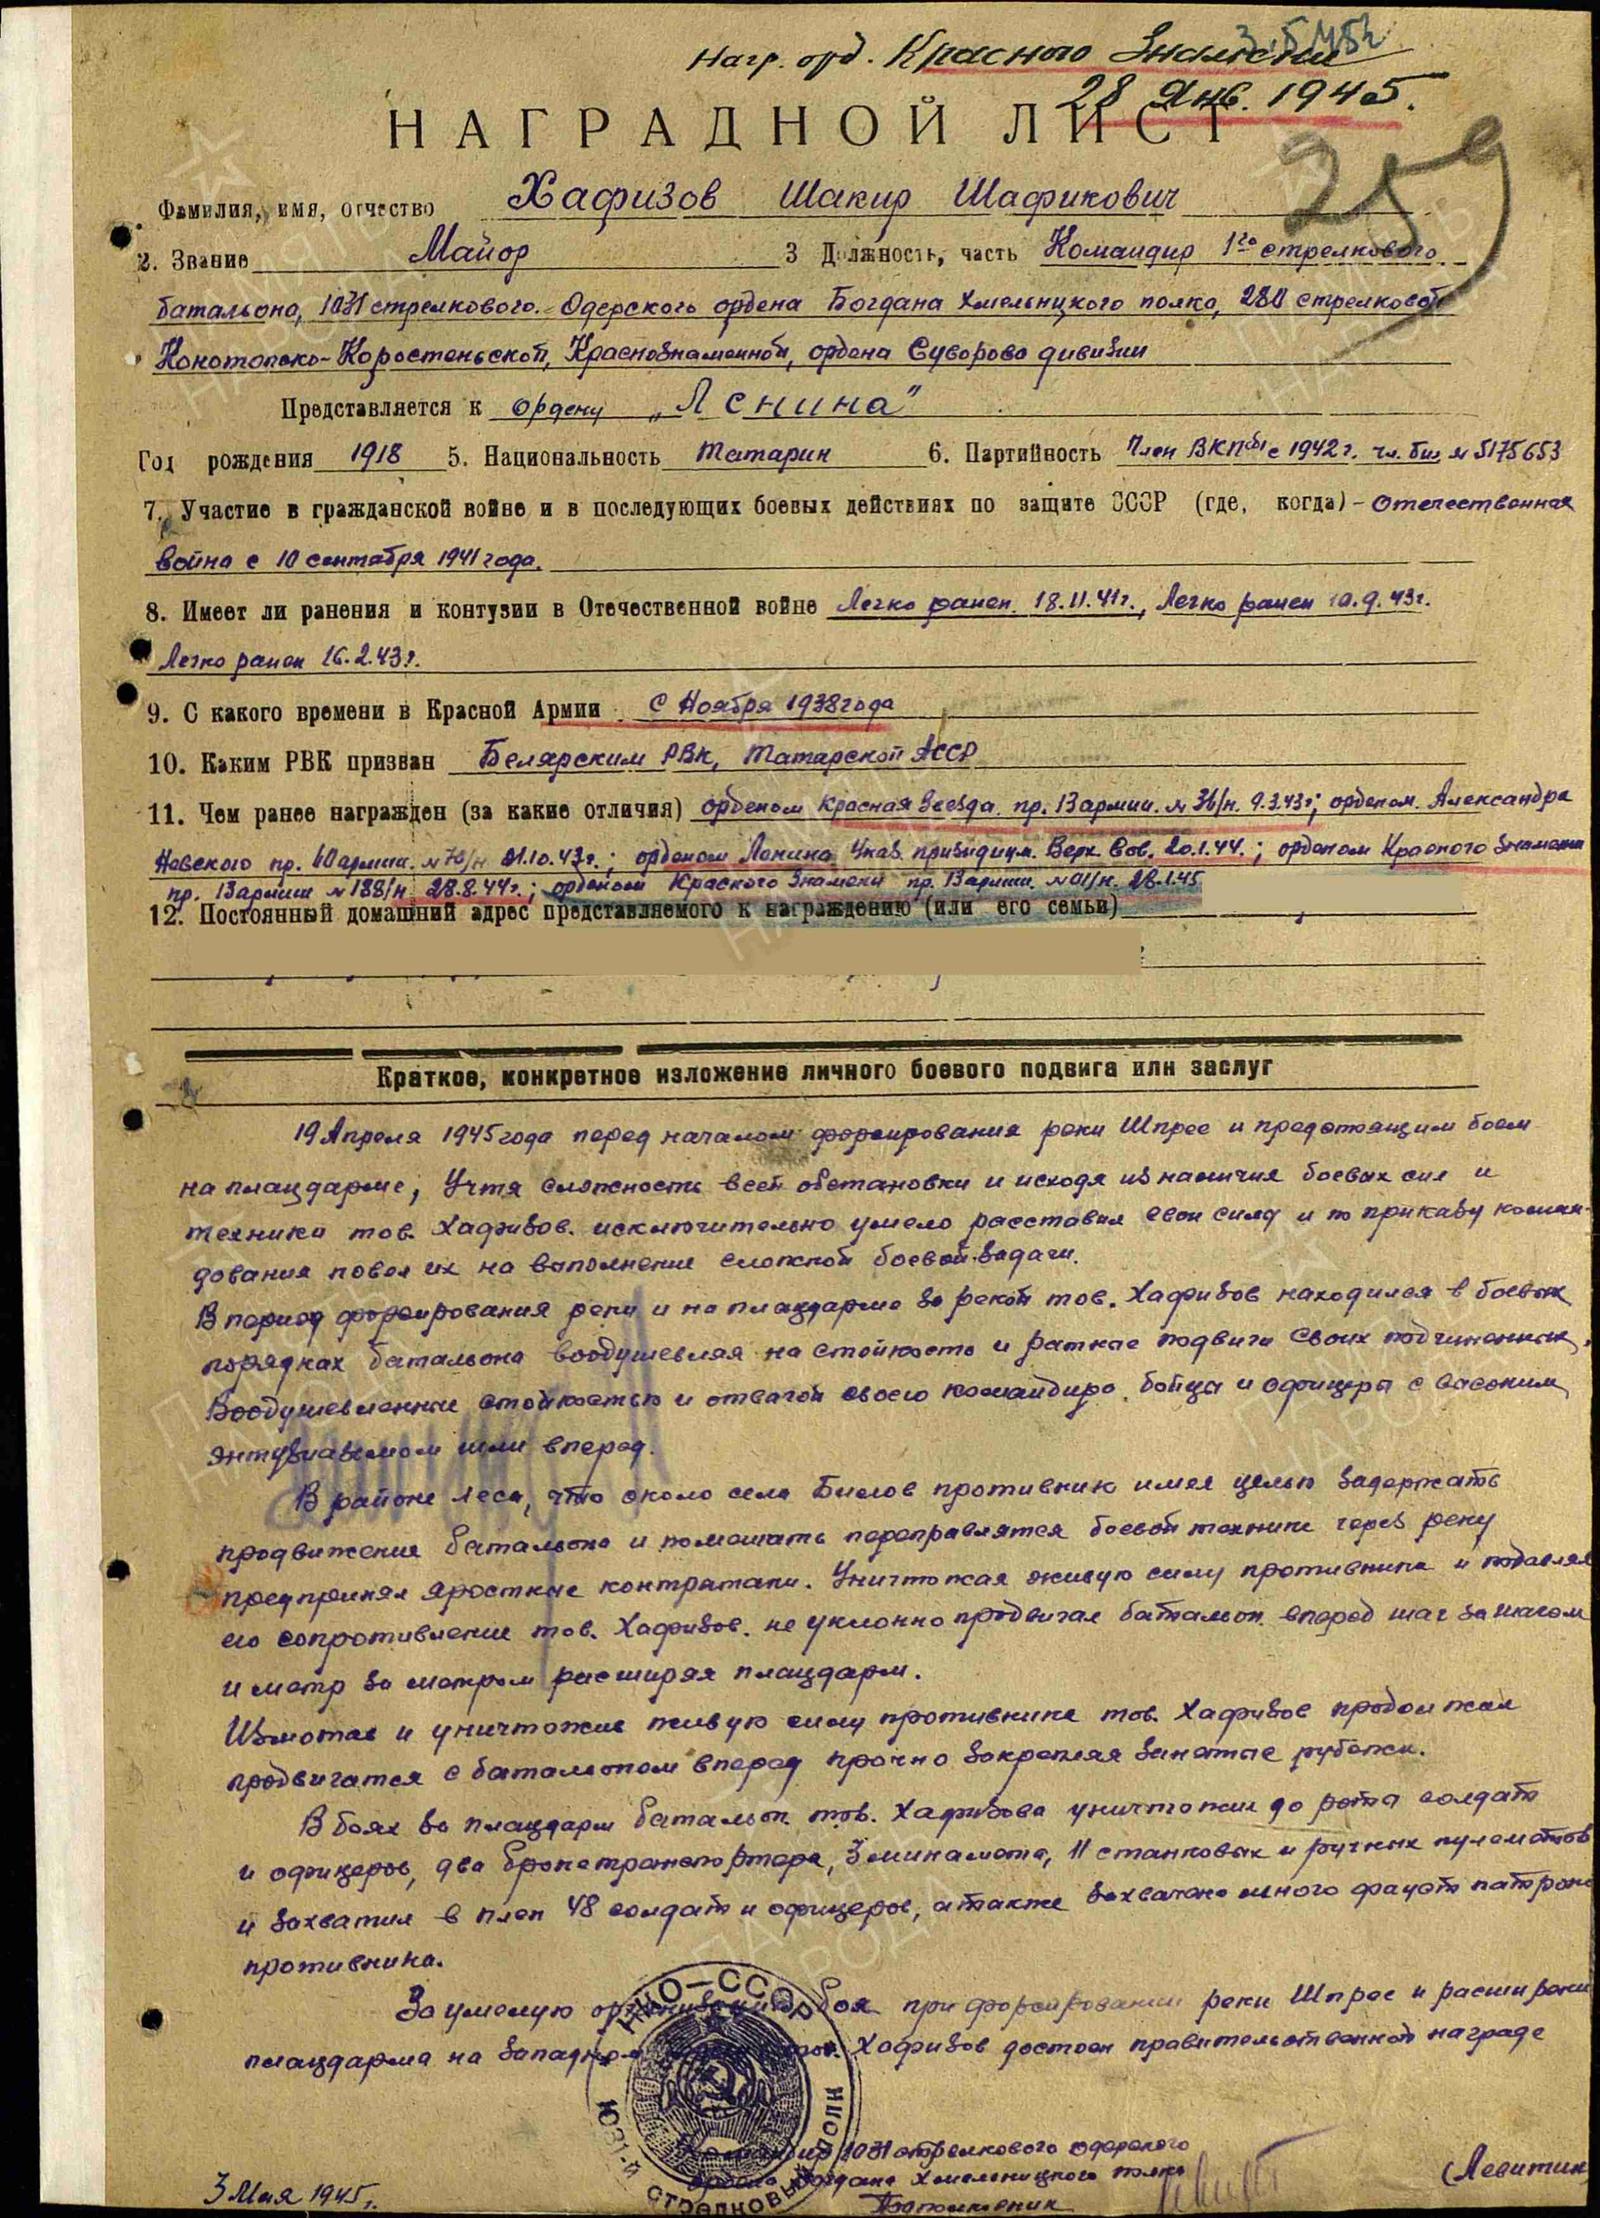 3.5.45г
Нагр. орд. Красного Знамени
28 Янв. 1945.
НАГРАДНОЙ ЛИСТ
259
Фамилия, имя, отчество Хафизов Шакир Шафикович
2. Звание Майор 3 Должность, часть Командир 1го стрелкового
батальона, 1031 стрелкового Одерского ордена Богдана Хмельницкого полка, 280 стрелковой
Конотопско-Коростеньской, Краснознаменной, ордена Суворова дивизии
Представляется к ордену „Ленина"
Год рождения 1918 5. Национальность татарин 6. Партийность Член ВКП(б) с 1942 г. чл. бил № 5175653
7. Участие в гражданской войне и в последующих боевых действиях по защите СССР (где, когда) - Отечественная
война с 10 сентября 1941 года.
8. Имеет ли ранения и контузии в Отечественной войне Легко ранен 18.11.41г., Легко ранен 10.9.43г.
Легко ранен 16.2.43г.
9. С какого времени в Красной Армии с Ноября 1938 года
10. Каким РВК призван Белярским РВК, Татарской АССР
11. Чем ранее награжден (за какие отличия) орденом Красная Звезда пр. 13 армии № 36/н. 9.3.43г; орденом Александра
Невского пр. 60 армии № 70/н 01.10.43г.; орденом Ленина Указ. президиум. Верх. Сов. 20.1.44.; орденом Красного Знамени
пр. 13 армии № 188/н 28.8.44г.; орденом Красного Знамени пр. 13 армии № 01/н. 28.1.45
12. Постоянный домашний адрес представляемого к награждению (или его семьи)
Краткое, конкретное изложение личного боевого подвига или заслуг
19 Апреля 1945 года перед началом форсирования реки Шпрее и предстоящим боем
на плацдарме, Учтя сложность всей обстановки и исходя из наличия боевых сил и
техники тов. Хафизов. исключительно умело расставил свои силы и по приказу коман-
дования повел их на выполнение сложной боевой задачи.
В период форсирования реки и на плацдарме за рекой тов. Хафизов находился в боевых
порядках батальона воодушевляя на стойкость и ратные подвиги своих подчиненных.
Воодушевленные стойкостью и отвагой своего командира, бойцы и офицеры с высоким
энтузиазмом шли вперед.
В районе леса, что около села Бюлов противник имея целью задержать
продвижение батальона и помешать переправлятся боевой технике через реку
предпринял яростные контратаки. Уничтожая живую силу противника и подавляя
его сопротивление тов. Хафизов. не уклонно продвигал батальон вперед шаг за шагом
и метр за метром расширяя плацдарм.
Измотав и уничтожив живую силу противника тов. Хафизов продолжал
продвигатся с батальоном вперед прочно закрепляя занятые рубежи.
В боях за плацдарм батальон тов. Хафизова уничтожил до роты солдат
и офицеров, два бронетранспортера, 3 миномета, 11 станковых и ручных пулеметов
и захватил в плен 48 солдат и офицеров, а также захвачено много фауст патронов
противника.
За умелую организацию боя при форсировании реки Шпрее и расширении
плацдарма на западном тов. Хафизов достоен правительственной награде
НКО-СССР
1031-й СТРЕЛКОВЫЙ ПОЛК
Командир 1031 стрелкового Одерского
ордена Богдана Хмельницкого полка
Подполковник (Левитин
3 Мая 1945г.
ПАМЯТЬ НАРОДА